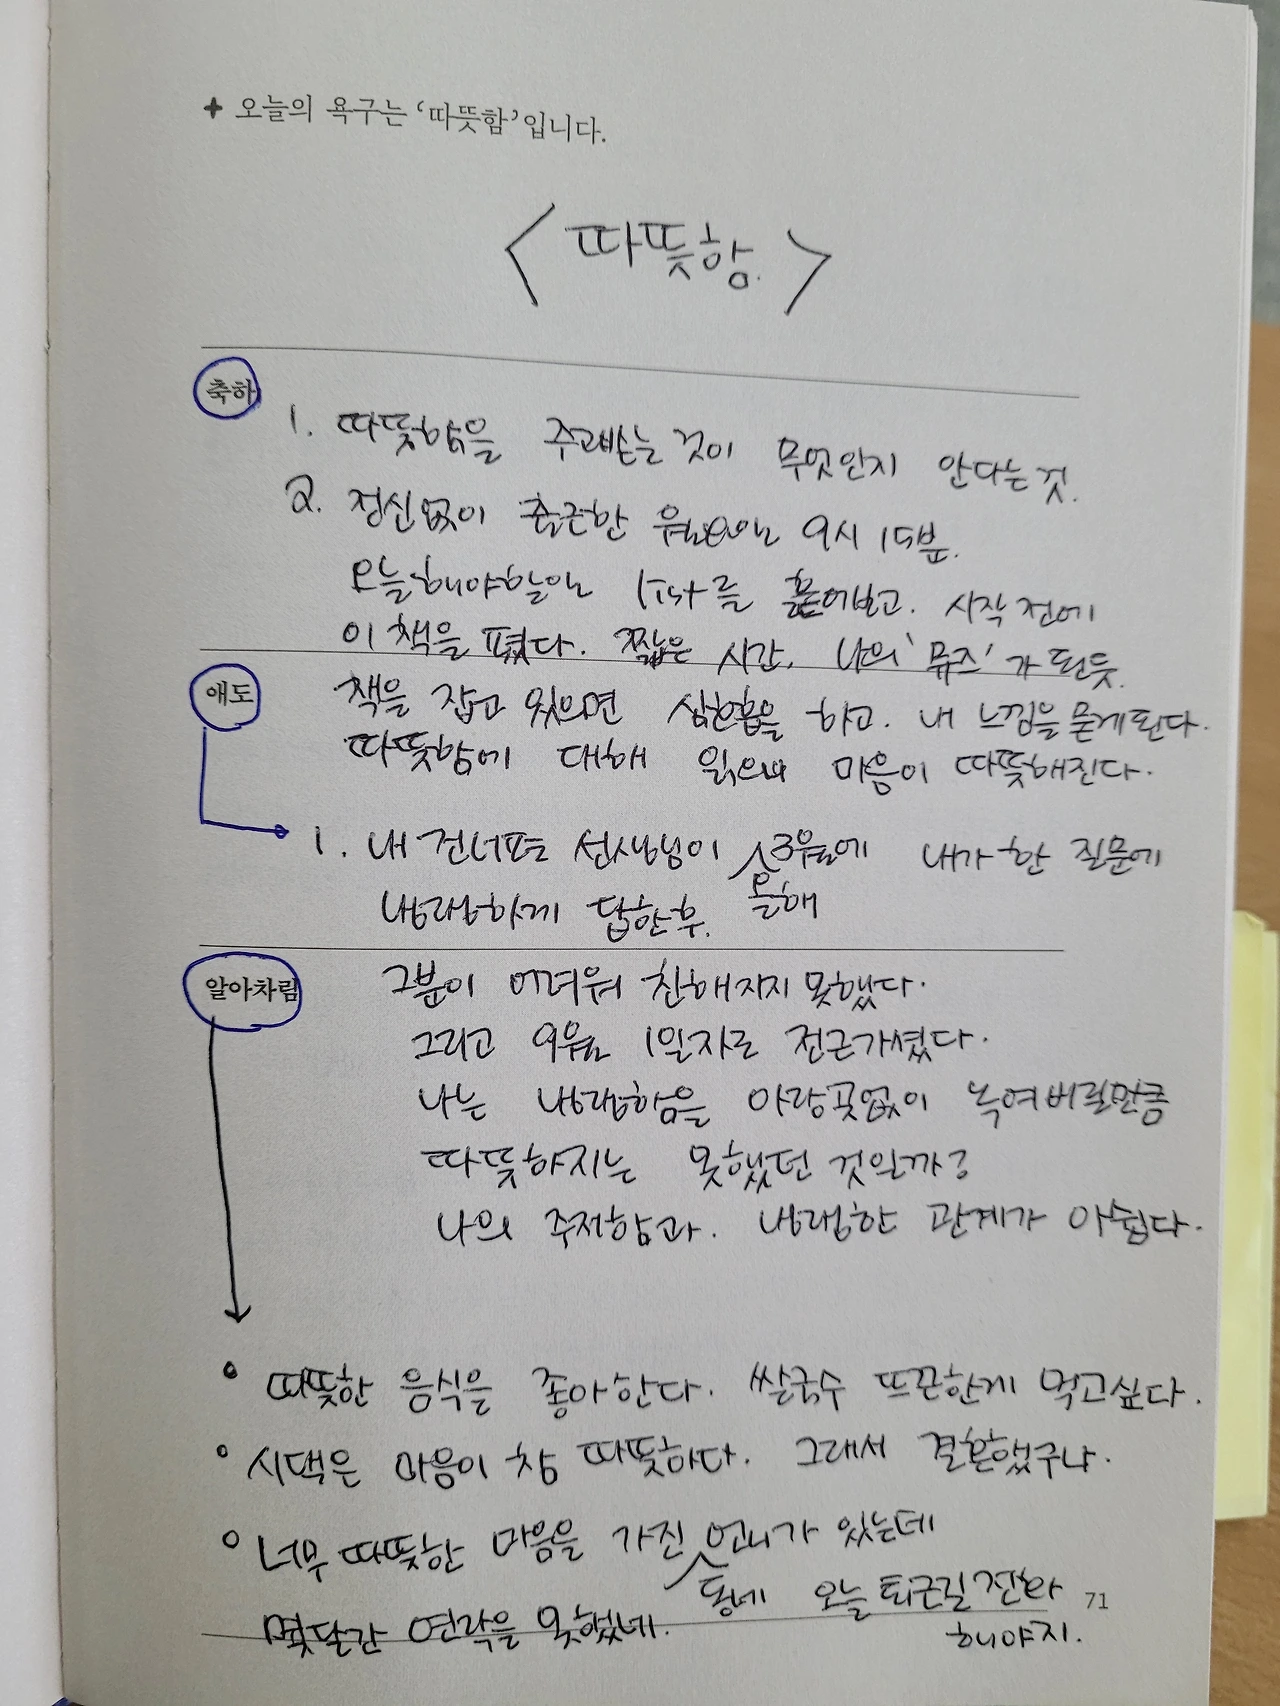 ✦ 오늘의 욕구는 ‘따뜻함’입니다.
< 따뜻함. >
축하
1. 따뜻함을 주고받는 것이 무엇인지 안다는 것.
2. 정신없이 출근한 월요일 9시 15분.
오늘 해야할일 list를 훑어보고. 시작 전에
이 책을 폈다. 짧은 시간. 나의 '뮤즈'가 된듯.
애도
책을 잡고 있으면 심호흡을 하고. 내 느낌을 묻게된다.
따뜻함에 대해 읽으니 마음이 따뜻해진다.
1. 내 건너편 선생님이 올해 3월에 내가 한 질문에
냉랭하게 답한후.
알아차림
그분이 어려워 친해지지 못했다.
그리고 9월 1일자로 전근가셨다.
나는 냉랭함을 아랑곳없이 녹여버릴만큼
따뜻하지는 못했던 것일까?
나의 주저함과. 냉랭한 관계가 아쉽다.
• 따뜻한 음식을 좋아한다. 쌀국수 뜨끈한게 먹고싶다.
• 시댁은 마음이 참 따뜻하다. 그래서 결혼했구나.
• 너무 따뜻한 마음을 가진 동네 언니가 있는데
몇달간 연락을 못했네. 오늘 퇴근길 전화
해야지.
71